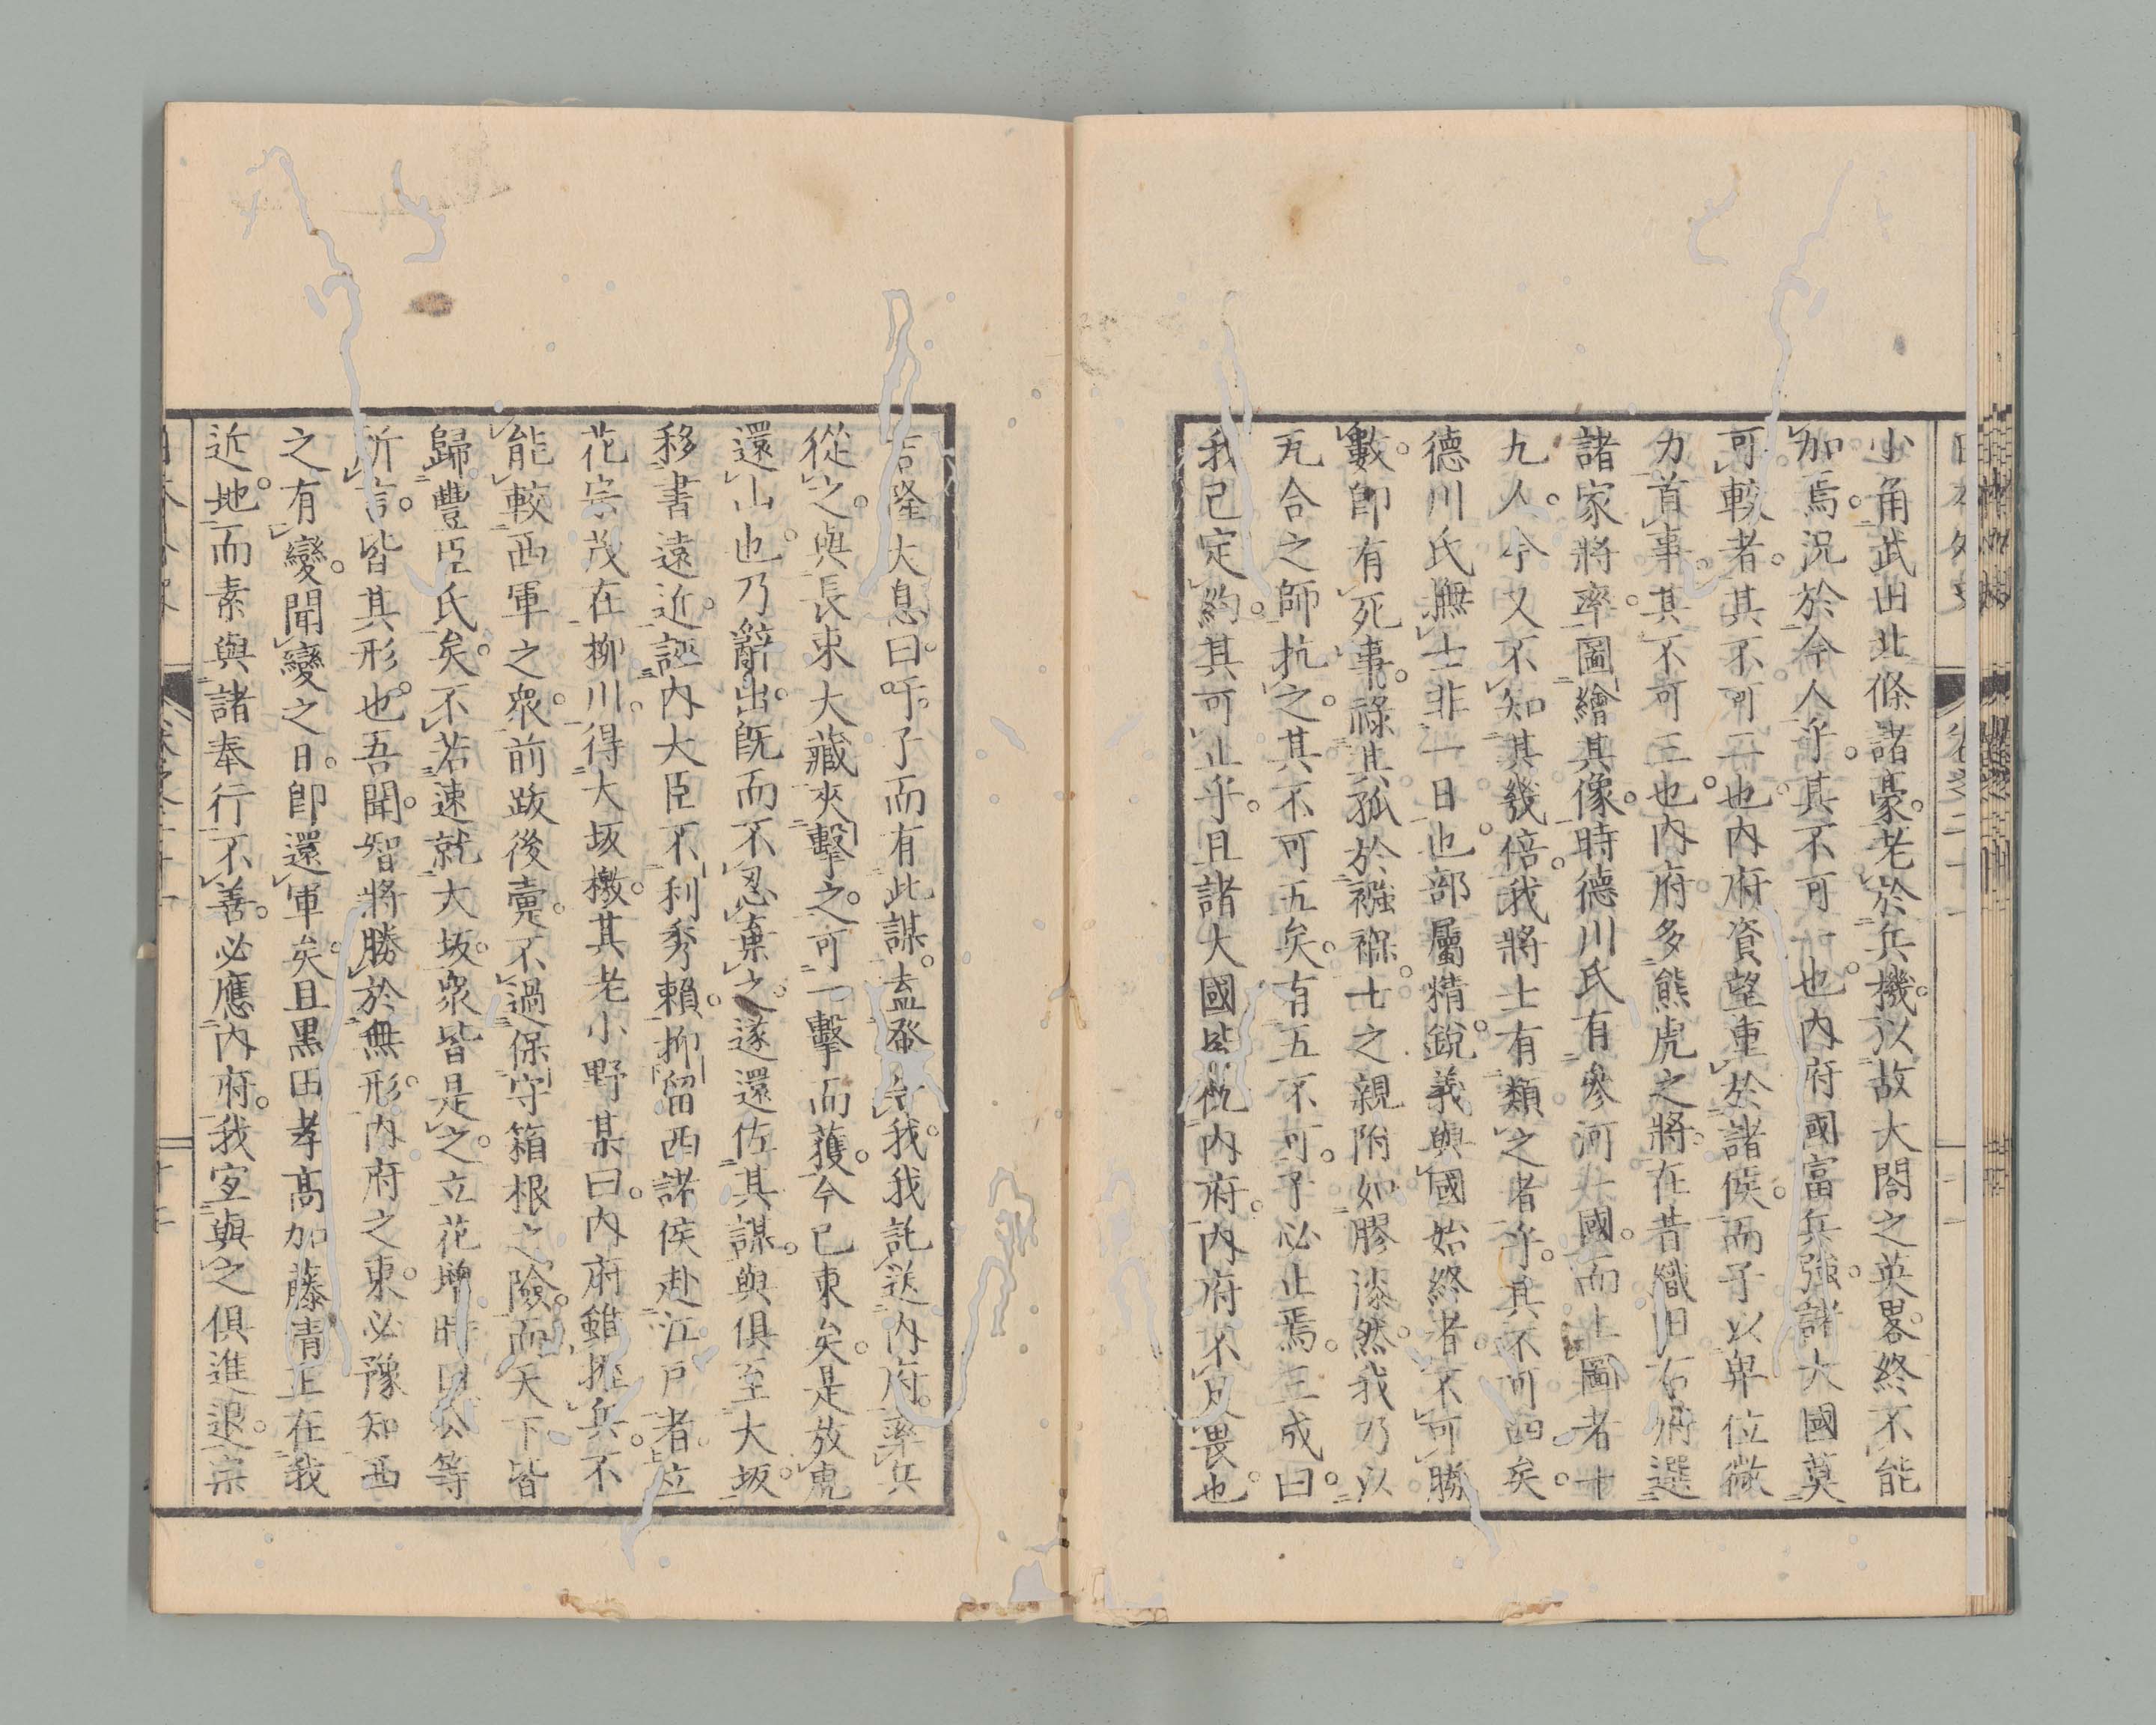 小角武田北條諸豪。老於兵機。以故大閤之英畧。終不能
加焉。況於今人乎。其不可一也。內府國富兵強。諸大國莫
可較者。其不可二也。內府資望重於諸侯。而子以卑位微
力首事。其不可三也。內府多熊虎之將。在昔織田右府選
諸家將率。圖繪其像。時德川氏有參河一國。而上圖者十
九人。今又不知其幾倍。我將士有類之者乎。其不可四矣。
德川氏撫士非一日也。部屬精銳。義與國始終者。不可勝
數。卽有死事。祿其孤於襁褓。士之親附如膠漆然。我乃以
瓦合之師抗之。其不可五矣。有五不可。子必止焉。三成曰。
我已定約。其可止乎。且諸大國皆仇內府。內府不足畏也。
吉隆大息曰。吁。子而有此謀。盍發告我。我託送內府。率兵
從之。與長束大藏夾擊之。可一擊而獲。今已東矣。是放虎
還山也。乃辭出。旣而不忍棄之。遂還佐其謀。與俱至大坂。
移書遠近。誣內大臣不利秀賴。抑留西諸侯赴江戶者。立
花宗茂在柳川。得大坂檄。其老小野某曰。內府雖擁兵。不
能較西軍之衆。前跋後疐。不過保守箱根之險。而天下皆
歸豐臣氏矣。不若速就大坂。衆皆是之。立花增時曰。公等
所言。皆其形也。吾聞。智將勝於無形。內府之東。必豫知西
之有變。聞變之日。卽還軍矣。且黑田孝高加藤清正在我
近地。而素與諸奉行不善。必應內府。我宜與之俱進退。宗